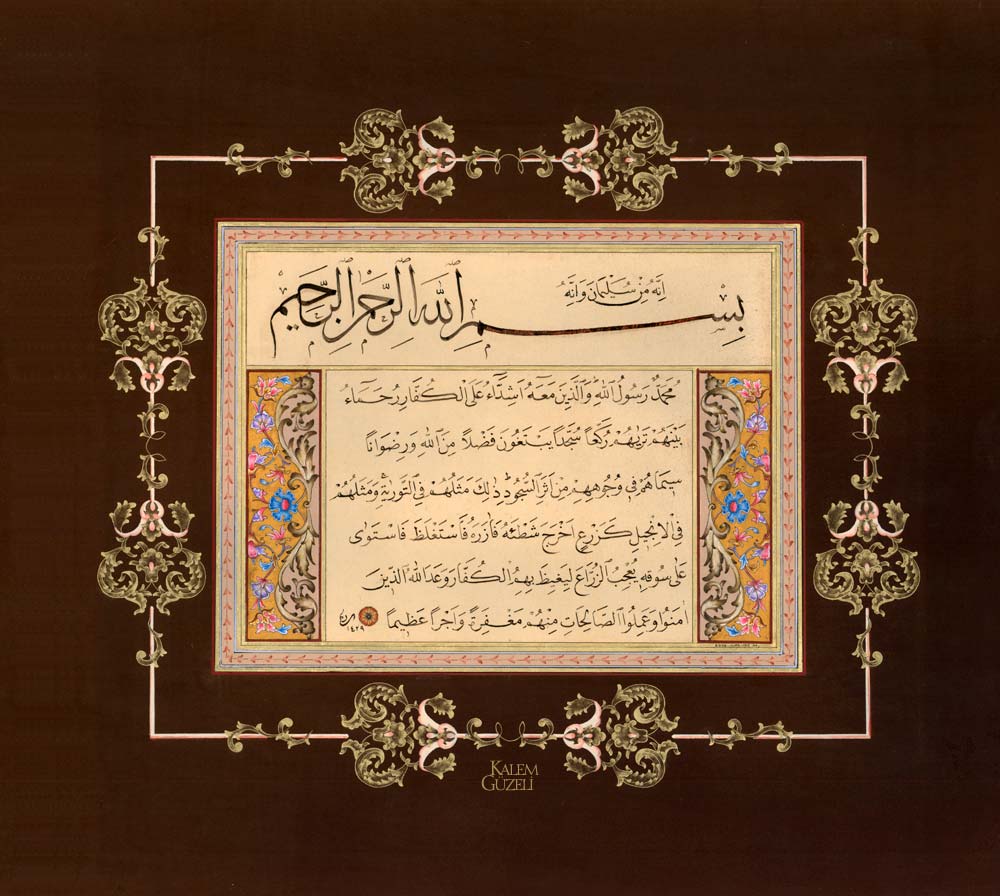 انه من سليمان وانه
بسم الله الرحمن الرحيم
محمد رسول الله والذين معه اشداء على الكفار رحماء
بينهم تريهم ركعا سجدا يبتغون فضلا من الله ورضوانا
سيماهم في وجوههم من اثر السجود ذلك مثلهم في التورية ومثلهم
في الانجيل كزرع اخرج شطئه فازره فاستغلظ فاستوى
على سوقه يعجب الزراع ليغيظ بهم الكفار وعد الله الذين
امنوا وعملوا الصالحات منهم مغفرة واجرا عظيما
١٤٢٩
KALEM
GÜZELİ